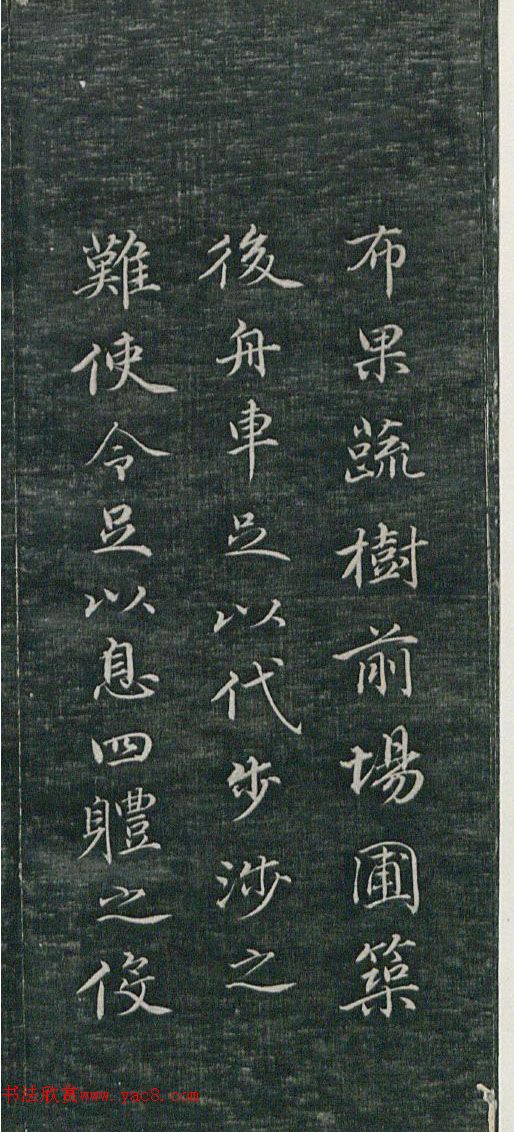 布果蔬樹前場圃築
後舟車足以代步涉之
難使令足以息四軆之役
书法欣赏www.yac8.com